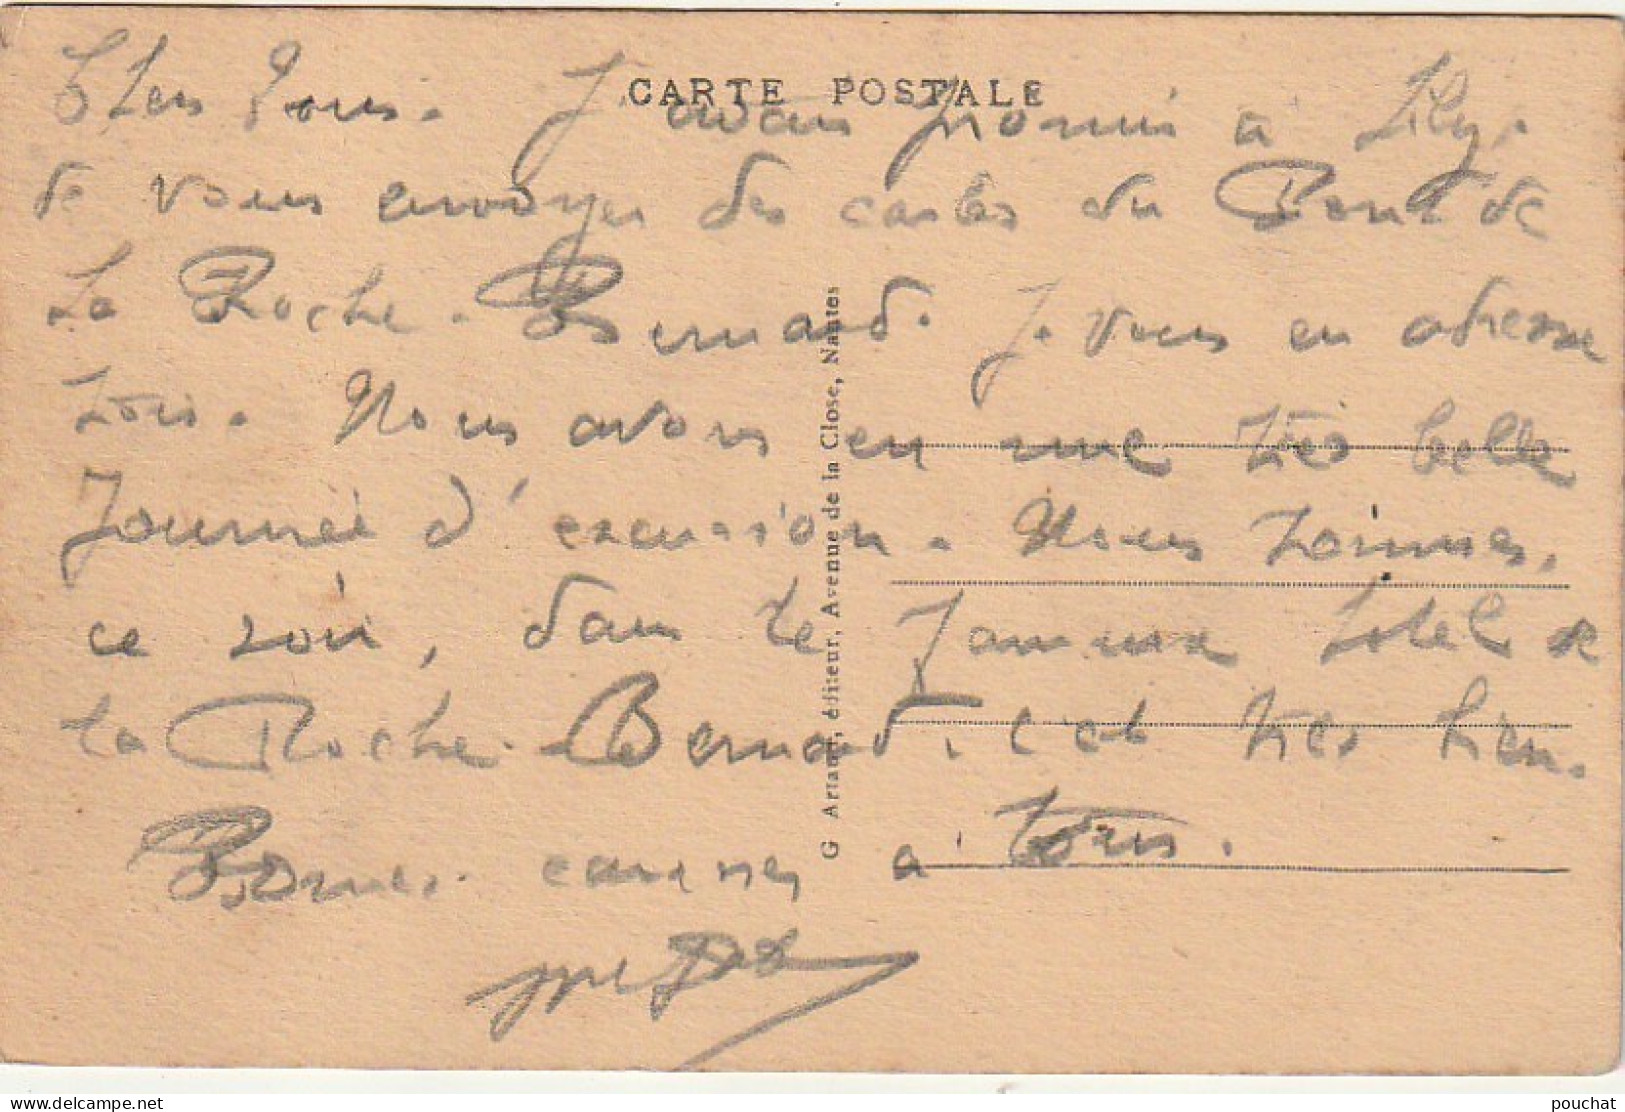 CARTE POSTALE
Chers tous. J'avais promis à Lily.
de vous envoyer des cartes du Pont de
La Roche-Bernard. J. vous en adresse
trois. Nous avons eu une très belle
journée d'excursion. Nous sommes,
ce soir, dans le fameux hotel de
la Roche-Bernard. C'est très bien.
Bonnes caresses à tous.
G Artaud, éditeur, Avenue de la Close, Nantes
pouchat